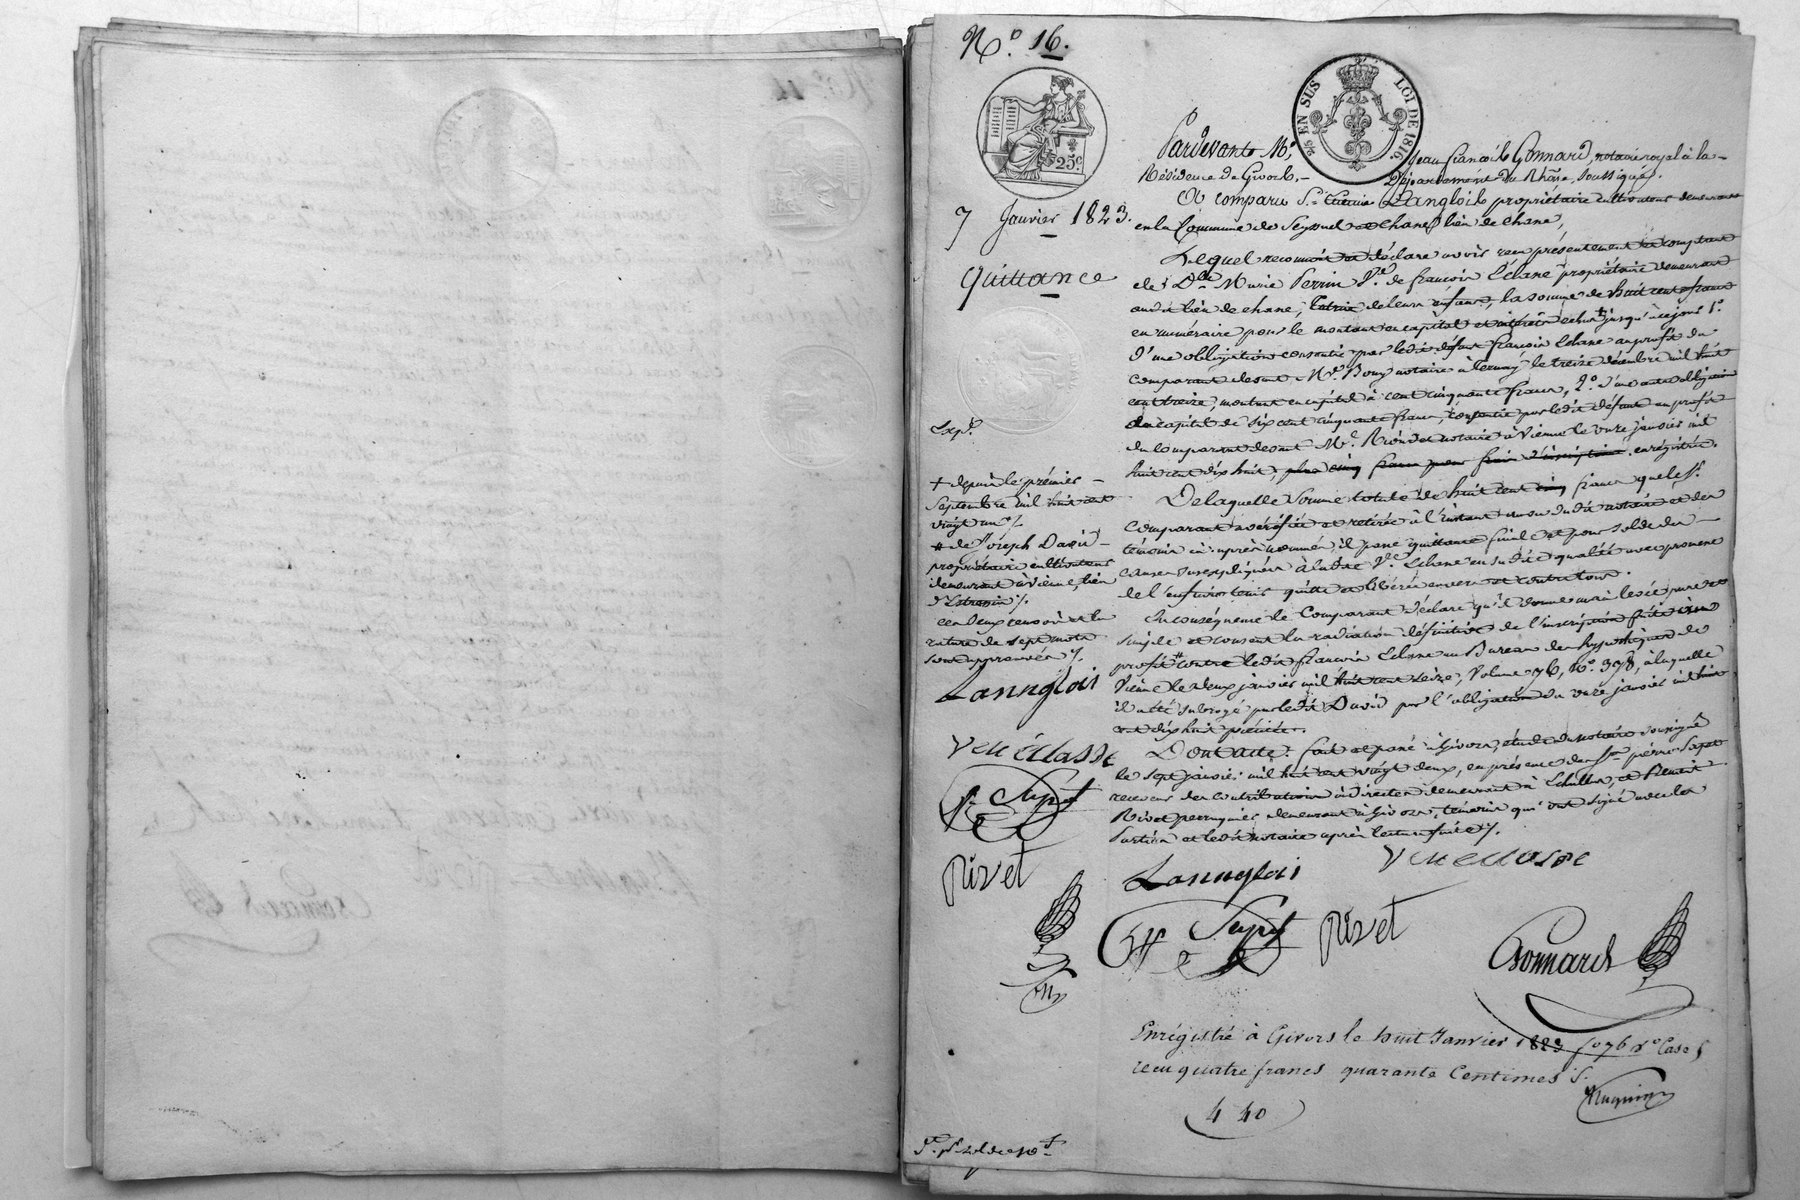 N.° 16.
25c.
¼ EN SUS LOI DE 1816
7 Janvier 1823.
Quittance
Pardevant M.e Jean françois Gonnard, notaire royal à la
Résidence de Givors, Département du Rhône, soussigné.
A comparu S.r Langlois propriétaire cultivateur demeurant
en la Commune de Seyssuel et Chane, lieu de Chane,
Lequel reconnait et déclare avoir reçu présentement et comptant
de D.e Marie Perrin V.e de françois propriétaire demeurant
audit lieu de chane, tutrice de leurs enfans, la somme de huit cent francs
en numéraire pour le montant en capital et intérêts jusqu'à ce jour 1.°
d'une obligation consentie par ledit défunt françois au profit du
comparant devant M.e notaire à Ternay le treize décembre mil huit
cent treize, montant en capital à cent cinquante francs, 2.° d'une autre obligation
du capital de six cent cinquante francs, consentie par ledit défunt au profit
du comparant devant M.e notaire à Vienne le onze janvier mil
huit cent dix huit, plus cinq francs pour frais d'inscription enregistrée.
De laquelle somme totale de huit cent cinq francs que le S.r
comparant a vérifiée et retirée à l'instant au vu dudit notaire et des
témoins ci-après nommés, il passe quittance finale et pour solde des
causes susexpliquées à ladite V.e en sadite qualité avec promesse
de l'en faire tenir quitte et libérée envers et contre tous.
En conséquence le Comparant déclare qu'il donne main levée pure et
simple et consent la radiation définitive de l'inscription faite à son
profit # contre ledit françois au Bureau des hypothèques de
Vienne le deux janvier mil huit cent seize, Volume 76, N.° 398, à laquelle
il a été subrogé par ledit David par l'obligation du onze janvier mil huit
cent dix huit précitée.
Dont acte : fait et passé à Givors, étude du notaire soussigné
le sept janvier mil huit cent vingt deux, en présence de S.rs pierre
receveur des contributions directes demeurant à Echallas, et
Rivet perruquier demeurant à Givors, témoins qui ont signé avec les
parties et ledit notaire après lecture faite ./.
Exp.
+ depuis le premier
Septembre mil huit cent
vingt un ./.
# de Joseph David
propriétaire cultivateur
demeurant à Vienne, lieu
d'Estressin ./.
ces deux renvois et la
rature de sept mots
sont approuvés ./.
Lannglois
Rivet
Lannglois
Rivet
Gonnard
Enrégistré à Givors le huit Janvier 1823 f.o 76 r.o Case 5
reçu quatre francs quarante Centimes
4 40